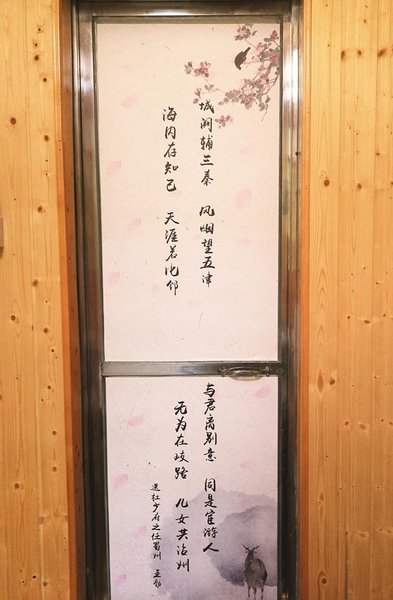 城阙辅三秦 风烟望五津
海内存知己 天涯若比邻
与君离别意 同是宦游人
无为在歧路 儿女共沾
送杜少府之任蜀州 王勃